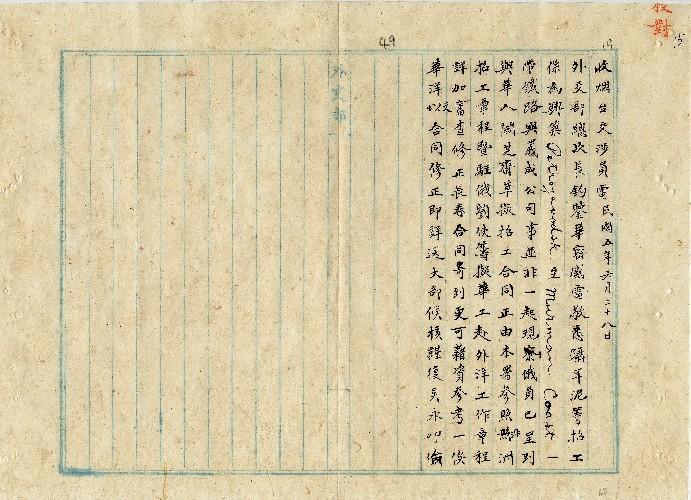 校對
19
49
收烟台交涉員電民國五年六月二十八日
外交部總次長鈞鑒華密咸電敬悉躡年泥署招工
係為興築 至 Coast 一
帶鐵路與義成公司事並非一起現察俄員已呈到
與華人闞芝齋草擬招工合同正由本署參照非洲
招工章程暨駐俄劉使等擬華工赴外洋工作章程
詳加審查修正長春合同寄到更可藉資參考一俟
華洋文合同修正即詳送大部候核謹復吳永叩儉
外交部